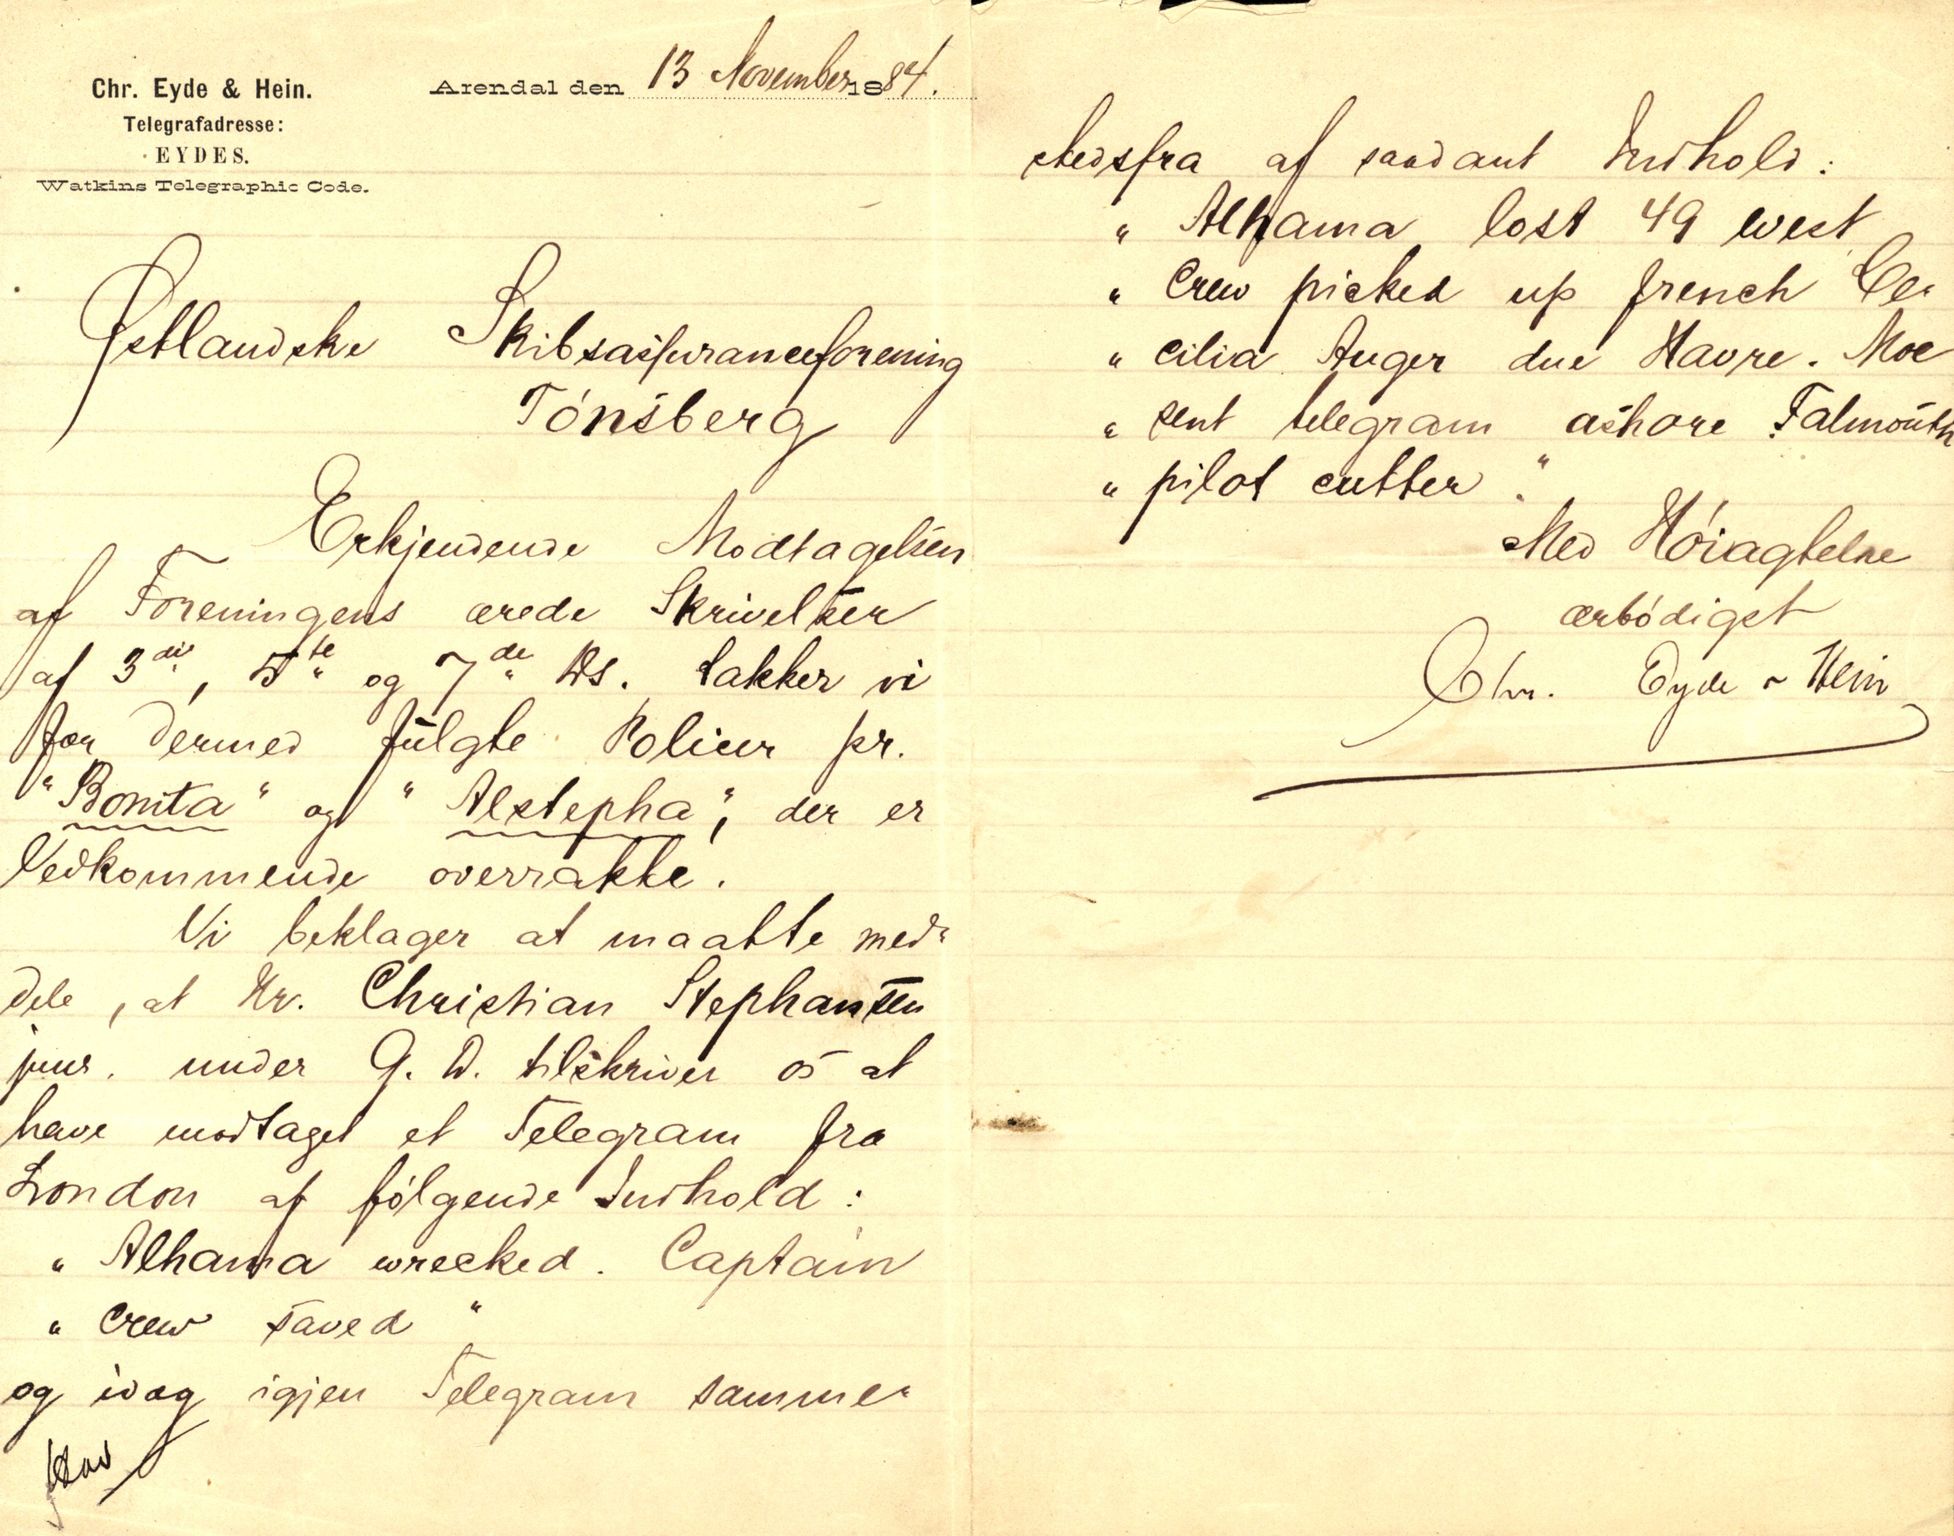 Chr. Eyde & Hein.
Telegrafadresse:
EYDES.
Watkins Telegraphic Code.
Arendal den 13 November 1884.
Østlandske Skibsassuranceforening
Tónsberg
Erkjendende Modtagelsen
af Foreningens ærede Skrivelser
af 3die, 5te og 7de ds. takker vi
for dermed fulgte Policer pr.
"Bonita" og "Alstepha", der er
Vedkommende overrakte.
Vi beklager at maatte med-
dele, at Hr. Christian Stephansen
junr. under G. D. tilskriver os at
have modtaget et Telegram fra
London af fólgende Indhold:
" Alhama wrecked. Captain
" crew saved "
og idag igjen Telegram samme-
stedsfra af saadant Indhold:
" Alhama lost 49 west
" Crew picked up french Ce-
" cilia Auger due Havre. Moe
" sent telegram ashore Falmouth
" pilot cutter. "
Med Hóiagtelse
ærbódigst
Chr. Eyde & Hein